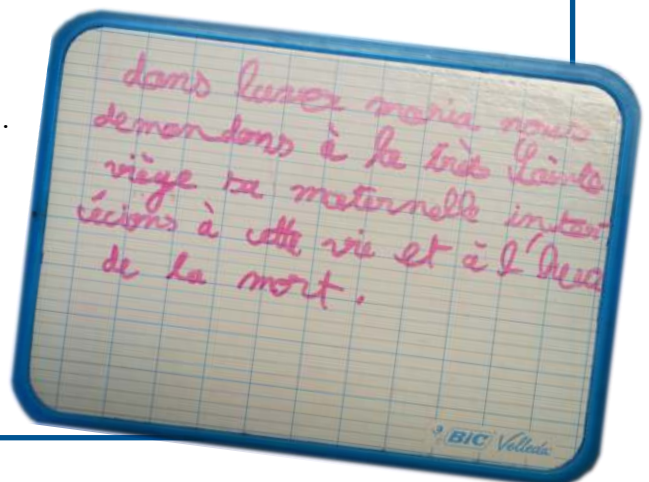 dans luvez maria nous
demandons à la très Sainte
viège sa maternelle inter
cécions à cette vie et à l'heure
de la mort.
BIC Velleda